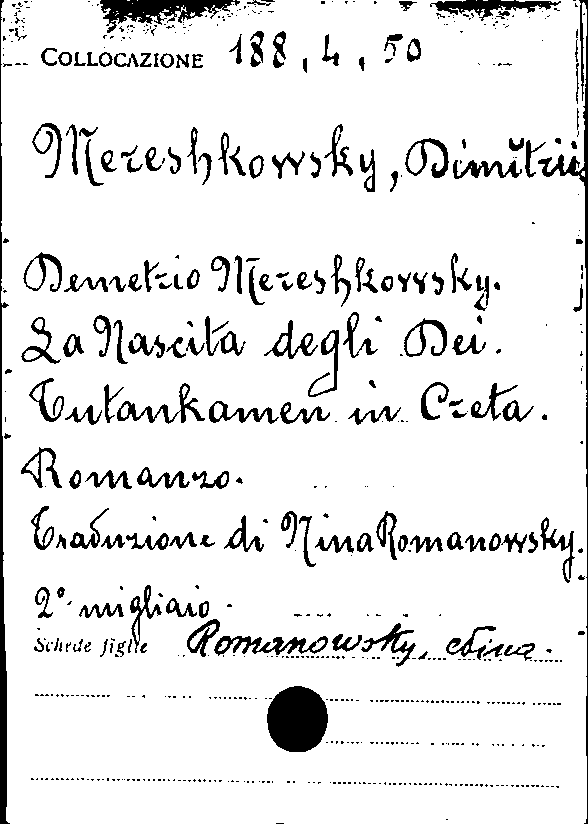 COLLOCAZIONE 188, 4, 50
Mereshkowsky, Dimitrii
Demetrio Mereshkowsky.
La Nascita degli Dei.
Tutankamen in Creta.
Romanzo.
Traduzione di Nina Romanowsky.
2° migliaio.
Schede figlie Romanowsky, Nina.